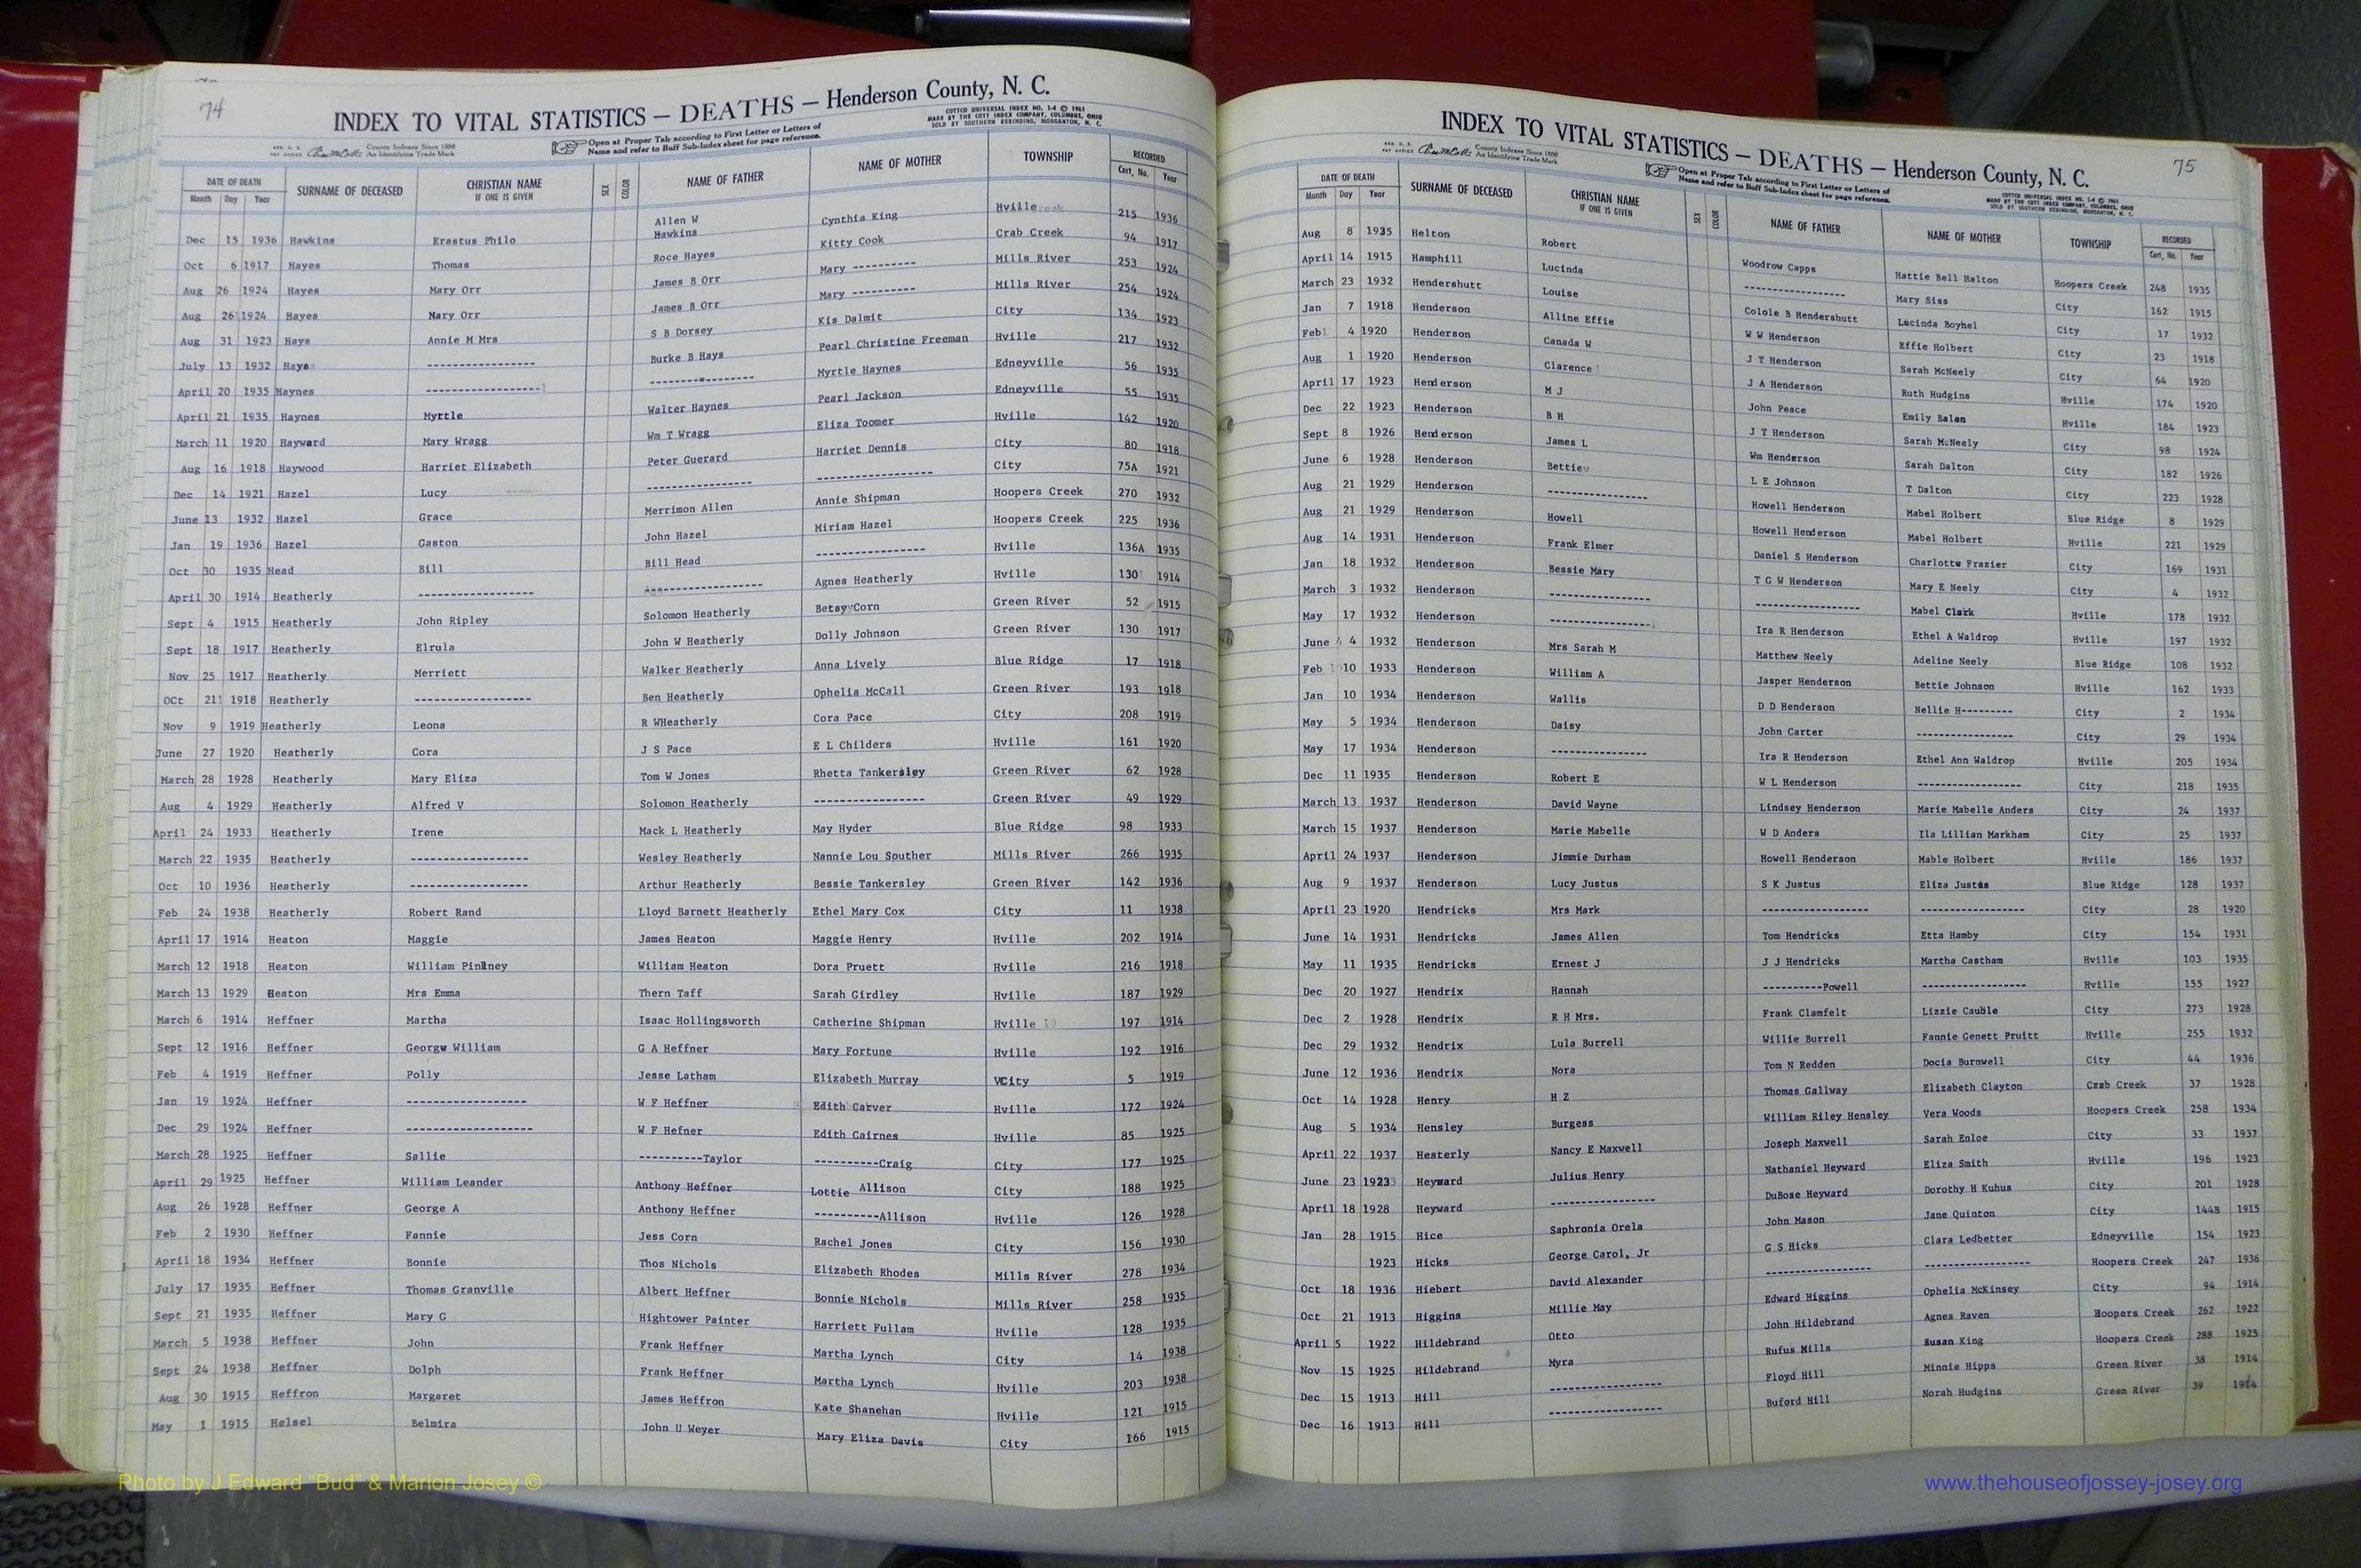 74
INDEX TO VITAL STATISTICS — DEATHS — Henderson County, N. C.
COTTCO UNIVERSAL INDEX NO. 1-4 © 1961
MADE BY THE COTT INDEX COMPANY, COLUMBUS, OHIO
SOLD BY SOUTHERN REBINDING, MORGANTON, N. C.
County Indexes Since 1888
An Identifying Trade Mark
Open at Proper Tab according to First Letter or Letters of
Name and refer to Buff Sub-Index sheet for page reference.
DATE OF DEATH SURNAME OF DECEASED CHRISTIAN NAME IF ONE IS GIVEN SEX COLOR NAME OF FATHER NAME OF MOTHER TOWNSHIP RECORDED
Month Day Year Cert. No. Year
Dec 15 1936 Hawkins Erastus Philo Allen W Hawkins Cynthia King Hville 215 1936
Oct 6 1917 Hayes Thomas Roce Hayes Kitty Cook Crab Creek 94 1917
Aug 26 1924 Hayes Mary Orr James B Orr Mary ---------- Mills River 253 1924
Aug 26 1924 Hayes Mary Orr James B Orr Mary ---------- Mills River 254 1924
Aug 31 1923 Hays Annie M Mrs S B Dorsey Kis Dalmit City 134 1923
July 13 1932 Hays ----------------- Burke B Hays Pearl Christine Freeman Hville 217 1932
April 20 1935 Haynes ----------------- ----------------- Myrtle Haynes Edneyville 56 1935
April 21 1935 Haynes Myrtle Walter Haynes Pearl Jackson Edneyville 55 1935
March 11 1920 Hayward Mary Wragg Wm T Wragg Eliza Toomer Hville 142 1920
Aug 16 1918 Haywood Harriet Elizabeth Peter Guerard Harriet Dennis City 80 1918
Dec 14 1921 Hazel Lucy ----------------- ------------------ City 75A 1921
June 13 1932 Hazel Grace Merrimon Allen Annie Shipman Hoopers Creek 270 1932
Jan 19 1936 Hazel Gaston John Hazel Miriam Hazel Hoopers Creek 225 1936
Oct 30 1935 Head Bill Bill Head ----------------- Hville 136A 1935
April 30 1914 Heatherly ------------------ ------------------ Agnes Heatherly Hville 130 1914
Sept 4 1915 Heatherly John Ripley Solomon Heatherly Betsy Corn Green River 52 1915
Sept 18 1917 Heatherly Elrula John W Heatherly Dolly Johnson Green River 130 1917
Nov 25 1917 Heatherly Merriett Walker Heatherly Anna Lively Blue Ridge 17 1918
OCt 21 1918 Heatherly ------------------ Ben Heatherly Ophelia McCall Green River 193 1918
Nov 9 1919 Heatherly Leona R WHeatherly Cora Pace City 208 1919
June 27 1920 Heatherly Cora J S Pace E L Childers Hville 161 1920
March 28 1928 Heatherly Mary Eliza Tom W Jones Rhetta Tankersley Green River 62 1928
Aug 4 1929 Heatherly Alfred V Solomon Heatherly ----------------- Green River 49 1929
April 24 1933 Heatherly Irene Mack L Heatherly May Hyder Blue Ridge 98 1933
March 22 1935 Heatherly ------------------ Wesley Heatherly Nannie Lou Souther Mills River 266 1935
Oct 10 1936 Heatherly ------------------ Arthur Heatherly Bessie Tankersley Green River 142 1936
Feb 24 1938 Heatherly Robert Rand Lloyd Barnett Heatherly Ethel Mary Cox City 11 1938
April 17 1914 Heaton Maggie James Heaton Maggie Henry Hville 202 1914
March 12 1918 Heaton William Pinkney William Heaton Dora Pruett Hville 216 1918
March 13 1929 Heaton Mrs Emma Thern Taff Sarah Girdley Hville 187 1929
March 6 1914 Heffner Martha Isaac Hollingsworth Catherine Shipman Hville 197 1914
Sept 12 1916 Heffner Georgw William G A Heffner Mary Fortune Hville 192 1916
Feb 4 1919 Heffner Polly Jesse Latham Elizabeth Murray City 5 1919
Jan 19 1924 Heffner ------------------ W F Heffner Edith Carver Hville 172 1924
Dec 29 1924 Heffner ------------------- W F Hefner Edith Cairnes Hville 85 1925
March 28 1925 Heffner Sallie ----------Taylor ----------Craig City 177 1925
April 29 1925 Heffner William Leander Anthony Heffner Lottie Allison City 188 1925
Aug 26 1928 Heffner George A Anthony Heffner ----------Allison Hville 126 1928
Feb 2 1930 Heffner Fannie Jess Corn Rachel Jones City 156 1930
April 18 1934 Heffner Bonnie Thos Nichols Elizabeth Rhodes Mills River 278 1934
July 17 1935 Heffner Thomas Granville Albert Heffner Bonnie Nichols Mills River 258 1935
Sept 21 1935 Heffner Mary G Hightower Painter Harriett Fullam Hville 128 1935
March 5 1938 Heffner John Frank Heffner Martha Lynch City 14 1938
Sept 24 1938 Heffner Dolph Frank Heffner Martha Lynch Hville 203 1938
Aug 30 1915 Heffron Margaret James Heffron Kate Shanehan Hville 121 1915
May 1 1915 Helsel Belmira John U Weyer Mary Eliza Davis City 166 1915
75
INDEX TO VITAL STATISTICS — DEATHS — Henderson County, N. C.
COTTCO UNIVERSAL INDEX NO. 1-4 © 1961
MADE BY THE COTT INDEX COMPANY, COLUMBUS, OHIO
SOLD BY SOUTHERN REBINDING, MORGANTON, N. C.
County Indexes Since 1888
An Identifying Trade Mark
Open at Proper Tab according to First Letter or Letters of
Name and refer to Buff Sub-Index sheet for page reference.
DATE OF DEATH SURNAME OF DECEASED CHRISTIAN NAME IF ONE IS GIVEN SEX COLOR NAME OF FATHER NAME OF MOTHER TOWNSHIP RECORDED
Month Day Year Cert. No. Year
Aug 8 1935 Helton Robert Woodrow Capps Hattie Bell Halton Hoopers Creek 248 1935
April 14 1915 Hamphill Lucinda ----------------- Mary Siss City 162 1915
March 23 1932 Hendershutt Louise Colole B Hendershutt Lucinda Boyhel City 17 1932
Jan 7 1918 Henderson Alline Effie W W Henderson Effie Holbert City 23 1918
Feb 4 1920 Henderson Canada W J T Henderson Sarah McNeely City 64 1920
Aug 1 1920 Henderson Clarence J A Henderson Ruth Hudgins Hville 174 1920
April 17 1923 Henderson M J John Peace Emily Balen Hville 184 1923
Dec 22 1923 Henderson B H J T Henderson Sarah McNeely City 98 1924
Sept 8 1926 Henderson James L Wm Henderson Sarah Dalton City 182 1926
June 6 1928 Henderson Bettie L E Johnson T Dalton City 223 1928
Aug 21 1929 Henderson ----------------- Howell Henderson Mabel Holbert Blue Ridge 8 1929
Aug 21 1929 Henderson Howell Howell Henderson Mabel Holbert Hville 221 1929
Aug 14 1931 Henderson Frank Elmer Daniel S Henderson Charlotte Frazier City 169 1931
Jan 18 1932 Henderson Bessie Mary T G W Henderson Mary E Neely City 4 1932
March 3 1932 Henderson ----------------- ----------------- Mabel Clark Hville 178 1932
May 17 1932 Henderson ----------------- Ira R Henderson Ethel A Waldrop Hville 197 1932
June 4 1932 Henderson Mrs Sarah M Matthew Neely Adeline Neely Blue Ridge 108 1932
Feb 10 1933 Henderson William A Jasper Henderson Bettie Johnson Hville 162 1933
Jan 10 1934 Henderson Wallis D D Henderson Nellie H--------- City 2 1934
May 5 1934 Henderson Daisy John Carter ----------------- City 29 1934
May 17 1934 Henderson ----------------- Ira R Henderson Ethel Ann Waldrop Hville 205 1934
Dec 11 1935 Henderson Robert E W L Henderson ------------------ City 218 1935
March 13 1937 Henderson David Wayne Lindsey Henderson Marie Mabelle Anders City 24 1937
March 15 1937 Henderson Marie Mabelle W D Anders Ila Lillian Markham City 25 1937
April 24 1937 Henderson Jimmie Durham Howell Henderson Mable Holbert Hville 186 1937
Aug 9 1937 Henderson Lucy Justus S K Justus Eliza Justus Blue Ridge 128 1937
April 23 1920 Hendricks Mrs Mark ------------------ ------------------ City 28 1920
June 14 1931 Hendricks James Allen Tom Hendricks Etta Hamby City 154 1931
May 11 1935 Hendricks Ernest J J J Hendricks Martha Castham Hville 103 1935
Dec 20 1927 Hendrix Hannah ----------Powell ------------------ Hville 155 1927
Dec 2 1928 Hendrix R H Mrs. Frank Clamfelt Lizzie Cauble City 273 1928
Dec 29 1932 Hendrix Lula Burrell Willie Burrell Fannie Genett Pruitt Hville 255 1932
June 12 1936 Hendrix Nora Tom N Redden Docia Burnwell City 44 1936
Oct 14 1928 Henry H Z Thomas Gallway Elizabeth Clayton Crab Creek 37 1928
Aug 5 1934 Hensley Burgess William Riley Hensley Vera Woods Hoopers Creek 258 1934
April 22 1937 Hesterly Nancy E Maxwell Joseph Maxwell Sarah Enloe City 33 1937
June 23 1923 Heyward Julius Henry Nathaniel Heyward Eliza Smith Hville 196 1923
April 18 1928 Heyward ------------------ DuBose Heyward Dorothy H Kuhus City 201 1928
Jan 28 1915 Hice Saphronia Orela John Mason Jane Quinton City 144B 1915
1923 Hicks George Carol, Jr G S Hicks Clara Ledbetter Edneyville 154 1923
Oct 18 1936 Hiebert David Alexander ------------------ ------------------ Hoopers Creek 247 1936
Oct 21 1913 Higgins Millie May Edward Higgins Ophelia McKinsey City 94 1914
April 5 1922 Hildebrand Otto John Hildebrand Agnes Raven Hoopers Creek 262 1922
Nov 15 1925 Hildebrand Myra Rufus Mills Susan King Hoopers Creek 288 1925
Dec 15 1913 Hill ------------------ Floyd Hill Minnie Hipps Green River 38 1914
Dec 16 1913 Hill ------------------ Buford Hill Norah Hudgins Green River 39 1914
Photo by J Edward "Bud" & Marion Josey ©
www.thehouseofjossey-josey.org